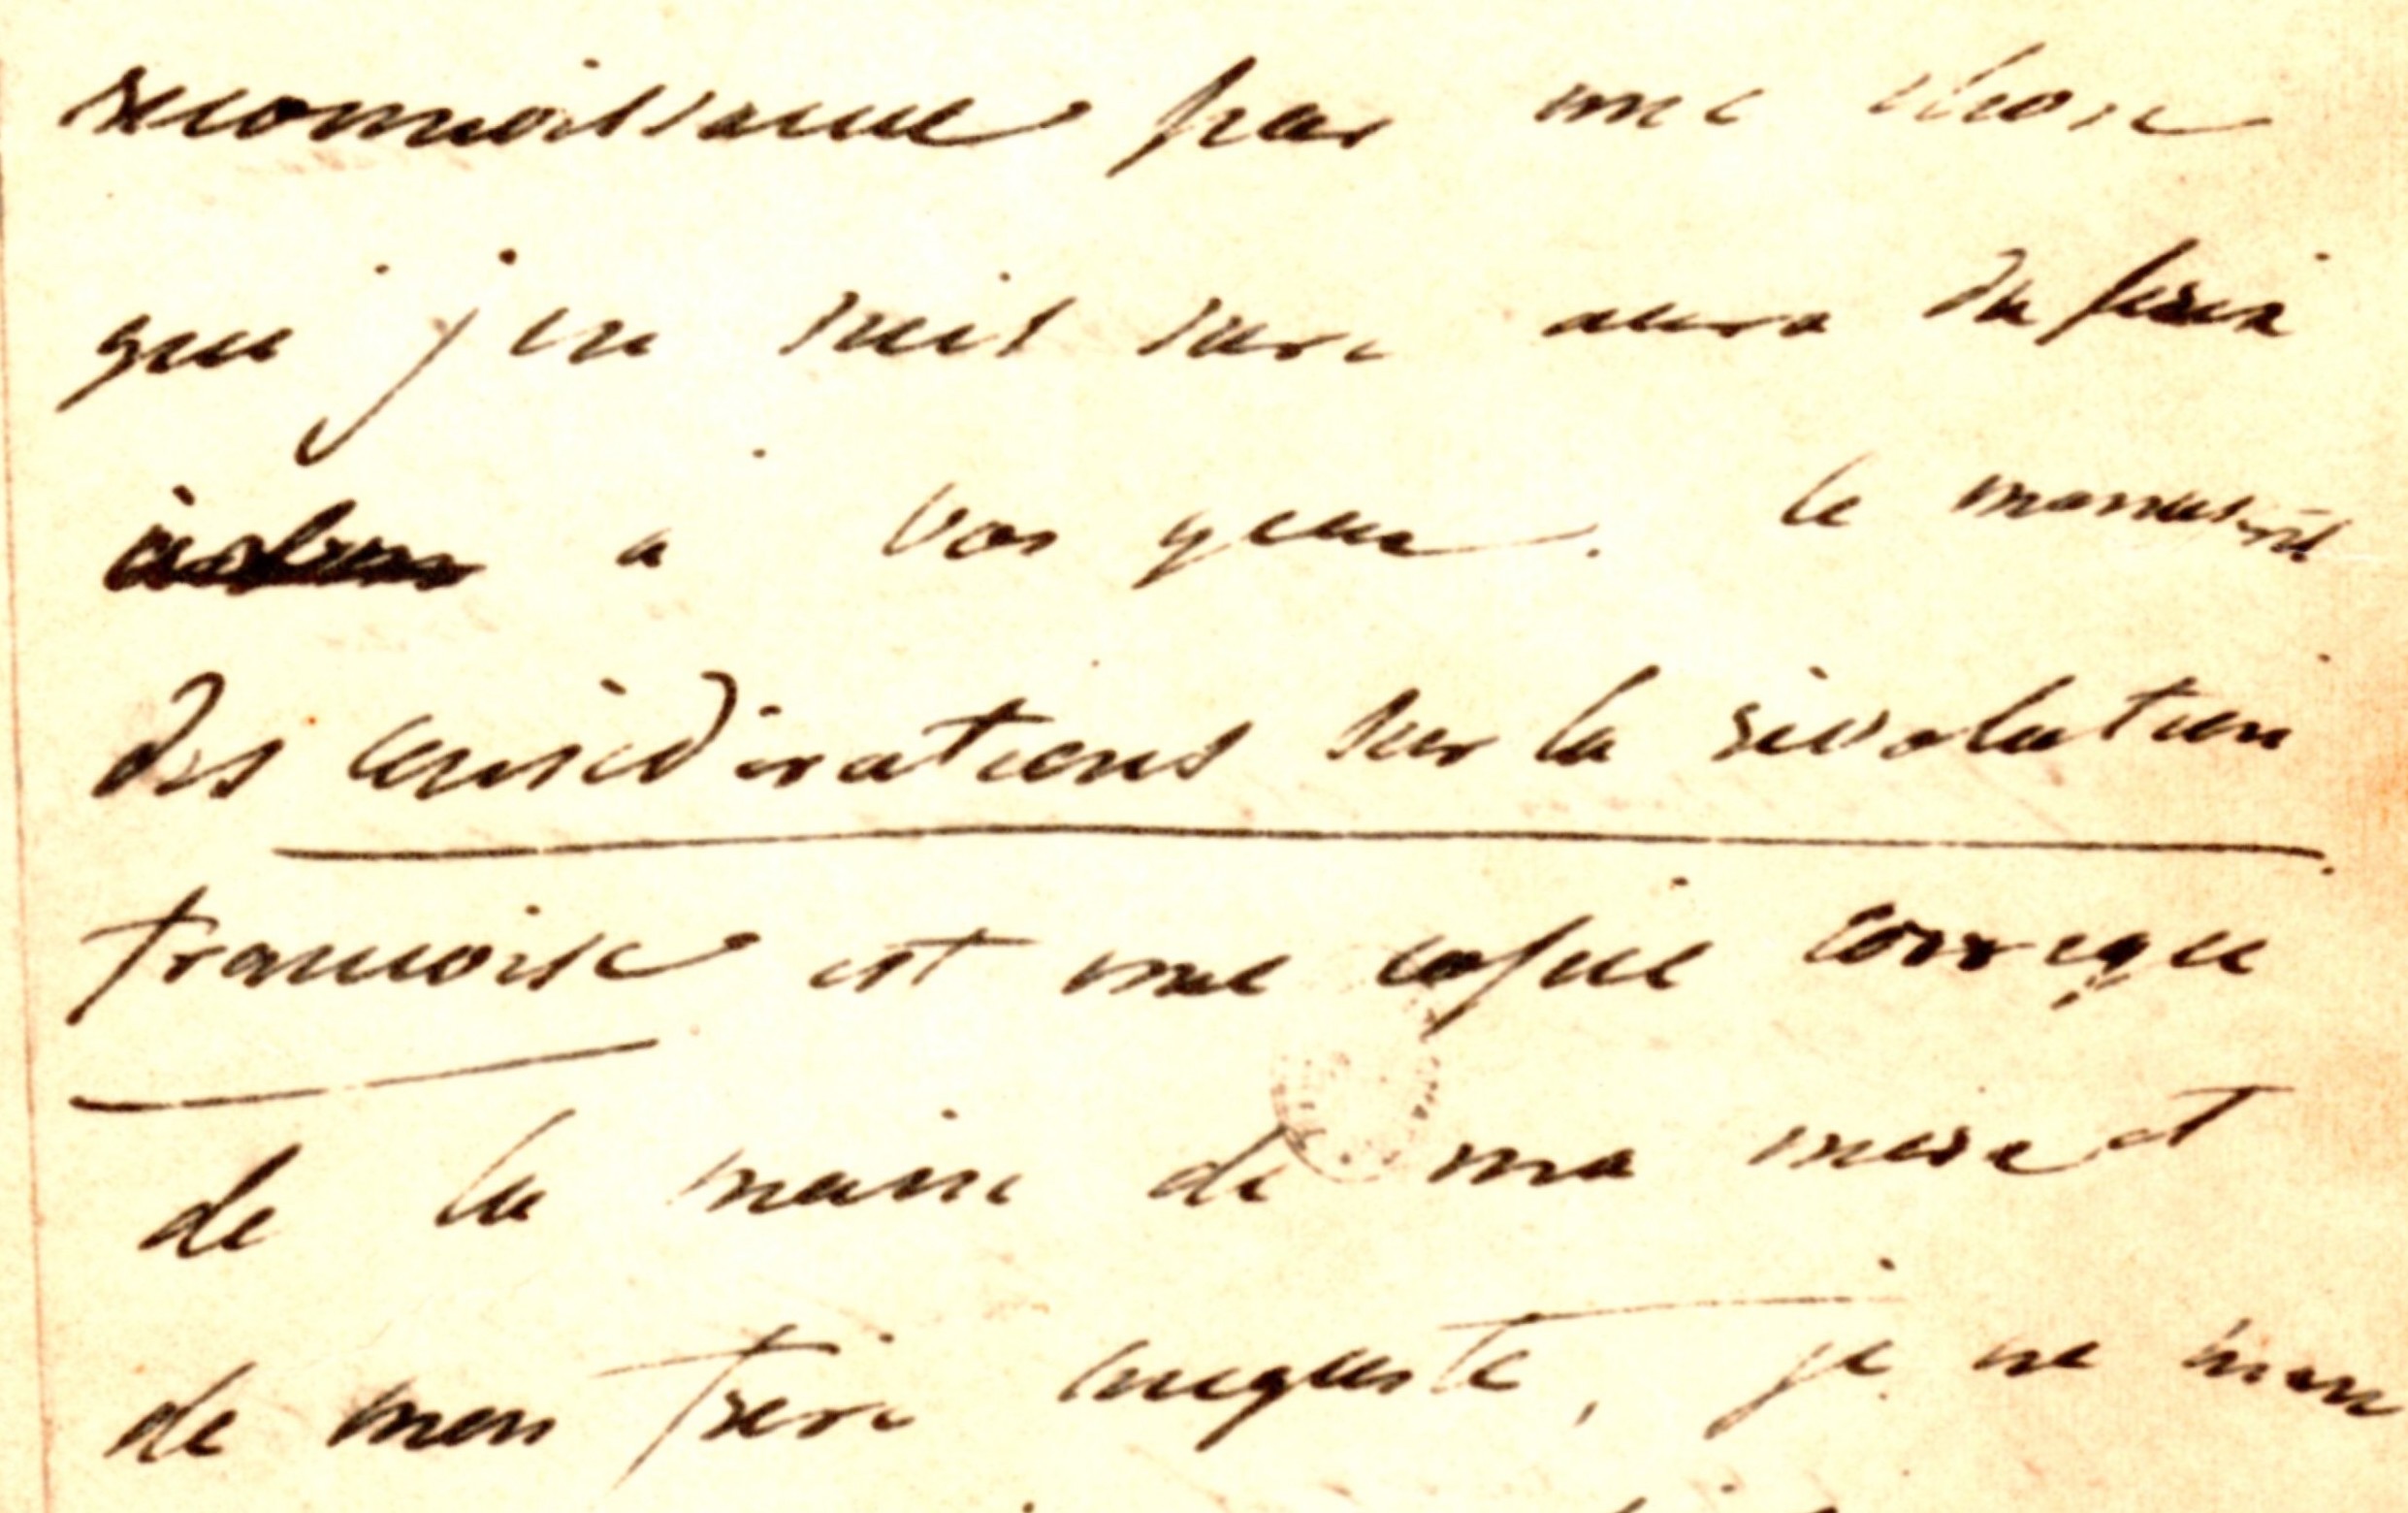 reconnoissance par une chose
que j'en suis sure aura du prix
a vos yeux. le manuscrit
des considérations sur la révolution
francoise est une copie corrigée
de la main de ma mere et
de mon frere auguste, je ne